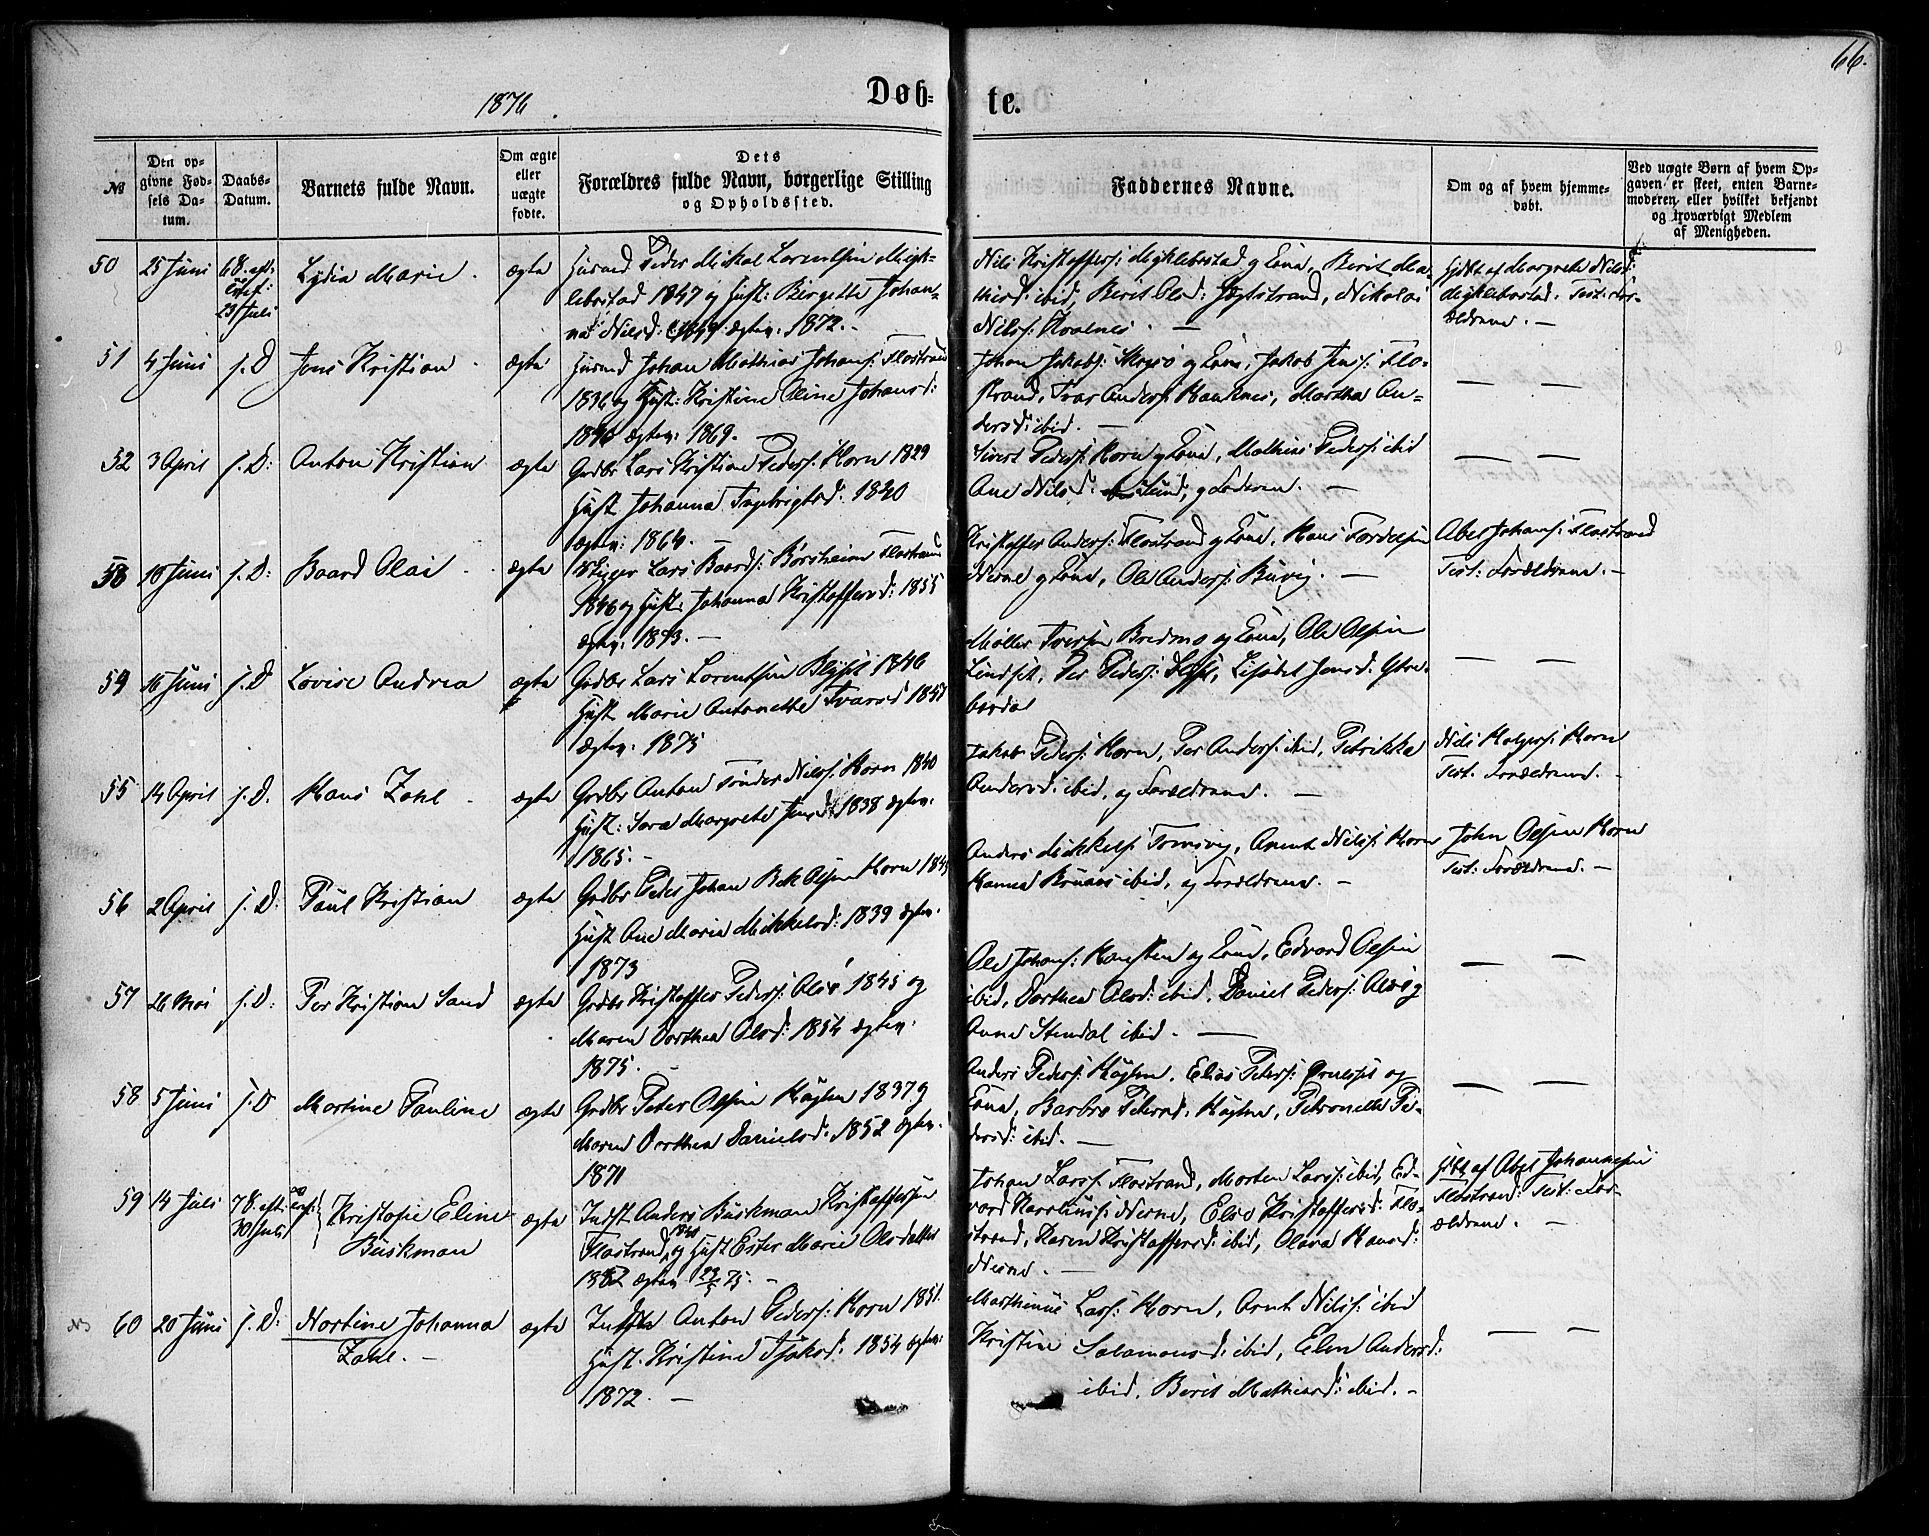 66.
1876
Døb-
te.
№
Den op-
givne Fød-
sels Da-
tum.
Daabs-
Datum.
Barnets fulde Navn.
Om ægte
eller
uægte
fødte.
Dets
Forældres fulde Navn, borgerlige Stilling
og Opholdssted.
Faddernes Navne.
Om og af hvem hjemme-
døbt.
Ved uægte Børn af hvem Op-
gaven er skeet, enten Barne-
moderen eller hvilket bekjendt
og troværdigt Medlem
af Menigheden.
50 25 Juni 6 S. eft.
23 Juli
Lydia Marie ægte
Husmd Peder Mikal Lorentsen Mik-
lebostad 1847 og Hust: Birgette Johan-
na Nilsd: 1849 ægtev. 1872.
Nils Kristoffers: Myklebostad g Kona, Berit Ma-
thisd: ibid, Berit Olsd: Jegtstrand, Nikolai
Nilss:
Hjdbt af Margrete Nilsd:
Myklebostad. Test: For-
ældrene. —
51 4 Juni s. D Jens Kristian ægte
Husmd Johan Mathias Johans: Flostrand
1836 og Hust: Kristine Oline Johansd:
ægtev: 1869. —
Johan Jakobs: og Kona, Jakob Jens: Flo-
strand, Ivar Anders: Hauknes, Martha An-
dersd: ibid. —
52 3 April s. D: Anton Kristian ægte
Grdbr Lars Kristian Peders: Horn 1829
Hust Johanna Ingebrigtsd. 1840
ægtev: 1864.
Sivert Peders: Horn g Kona, Mathias Peders: ibid
Ane Nilsd. g Faderen. —
53 18 Juni s. D: Baard Olai ægte
Lars Baards: Borsheim Flostrand
1846 og Hust: Johanna Kristoffersd: 1855
ægtev: 1873. —
Kristoffer Anders: Flostrand g Kona, Hans Fordelsen
Nerne g Kona, Ole Anders: Buvig. —
Abel Johans: Flostrand
Test: Forældrene. —
54 16 Juni s. D Lovise Andrea ægte
Grdbr Lars Lorentsen 1846
Hust Marie Antonette Ivarsd 1857
ægtev. 1875
Møller Iversen Bredmo og Kona, Ole Olsen
Lindset, Per Peders: Lisabet Jensd: Ytre-
berdal
55 14 April s. D. Hans Zahl ægte
Grdbr Anton Tønder Nilss: Horn 1840
Hust: Sara Margrete Jensd: 1838 ægtev.
1865. —
Jakob Peders: Horn, Per Anders: ibid, Petrikka
Andersd: ibid, og Forældrene. —
Nils Holgers: Horn
Test. Forældrene. —
56 2 April s. D: Paul Kristian ægte
Grdbr Peder Johan Bek Olsen Horn
Hust Ane Maria Mikkelsd: 1839 ægtev.
1873
Anders Mikkels: Arnt Nils: Horn
Hanna ibid, og Forældrene. —
John Olsen Horn
Test: Forældrene. —
57 26 Mai s. D: Per Kristian Sand ægte
Grdbr Kristoffer Peders: 1845 og
Maren Dorthea Olsd: 1854 ægtev.
1875. —
Ole Johans: og Kona, Edvard Olsen
ibid, Dorthea Olsd: ibid, Daniel Peders:
Anna Stendal ibid. —
58 5 Juni s. D Martine Pauline ægte
Grdbr Peter Olsen 1837 g
Maren Dorthea Danielsd: 1852 ægtev.
1871
Anders Peders: Elias Peters: og
Kona, Barbro Petersd, Petronelle Pe-
dersd: ibid. —
59 14 Juli 7 S. eft.
30 Juli
Kristofie Eline
Buskman
ægte
Indst Anders Buskman Kristoffersen
Flostrand, og Hust Ester Marie Olsdatter
ægtev. 75. —
Johan Lars: Flostrand, Morten Lars: ibid, Ed-
vard Karolius: Nerne, Elise Kristoffersd: Flo-
strand, Karen Kristoffersd: ibid, Olava Hansd:
Nerne. —
Hjdbt af Abel Johannesen
Flostrand: Test: For-
ældrene. —
60 20 Juni s. D: Nortine Johanna
Zahl. —
ægte
Indst Anton Peders: Horn 1851.
Hust. Kristine Isaksd: 1854 ægtev:
1872. —
Marthinus Lars: Horn, Arnt Nils: ibid
Kristine Salamonsd: ibid, Elen Andersd:
ibid, Berit Mathiasd: ibid. —